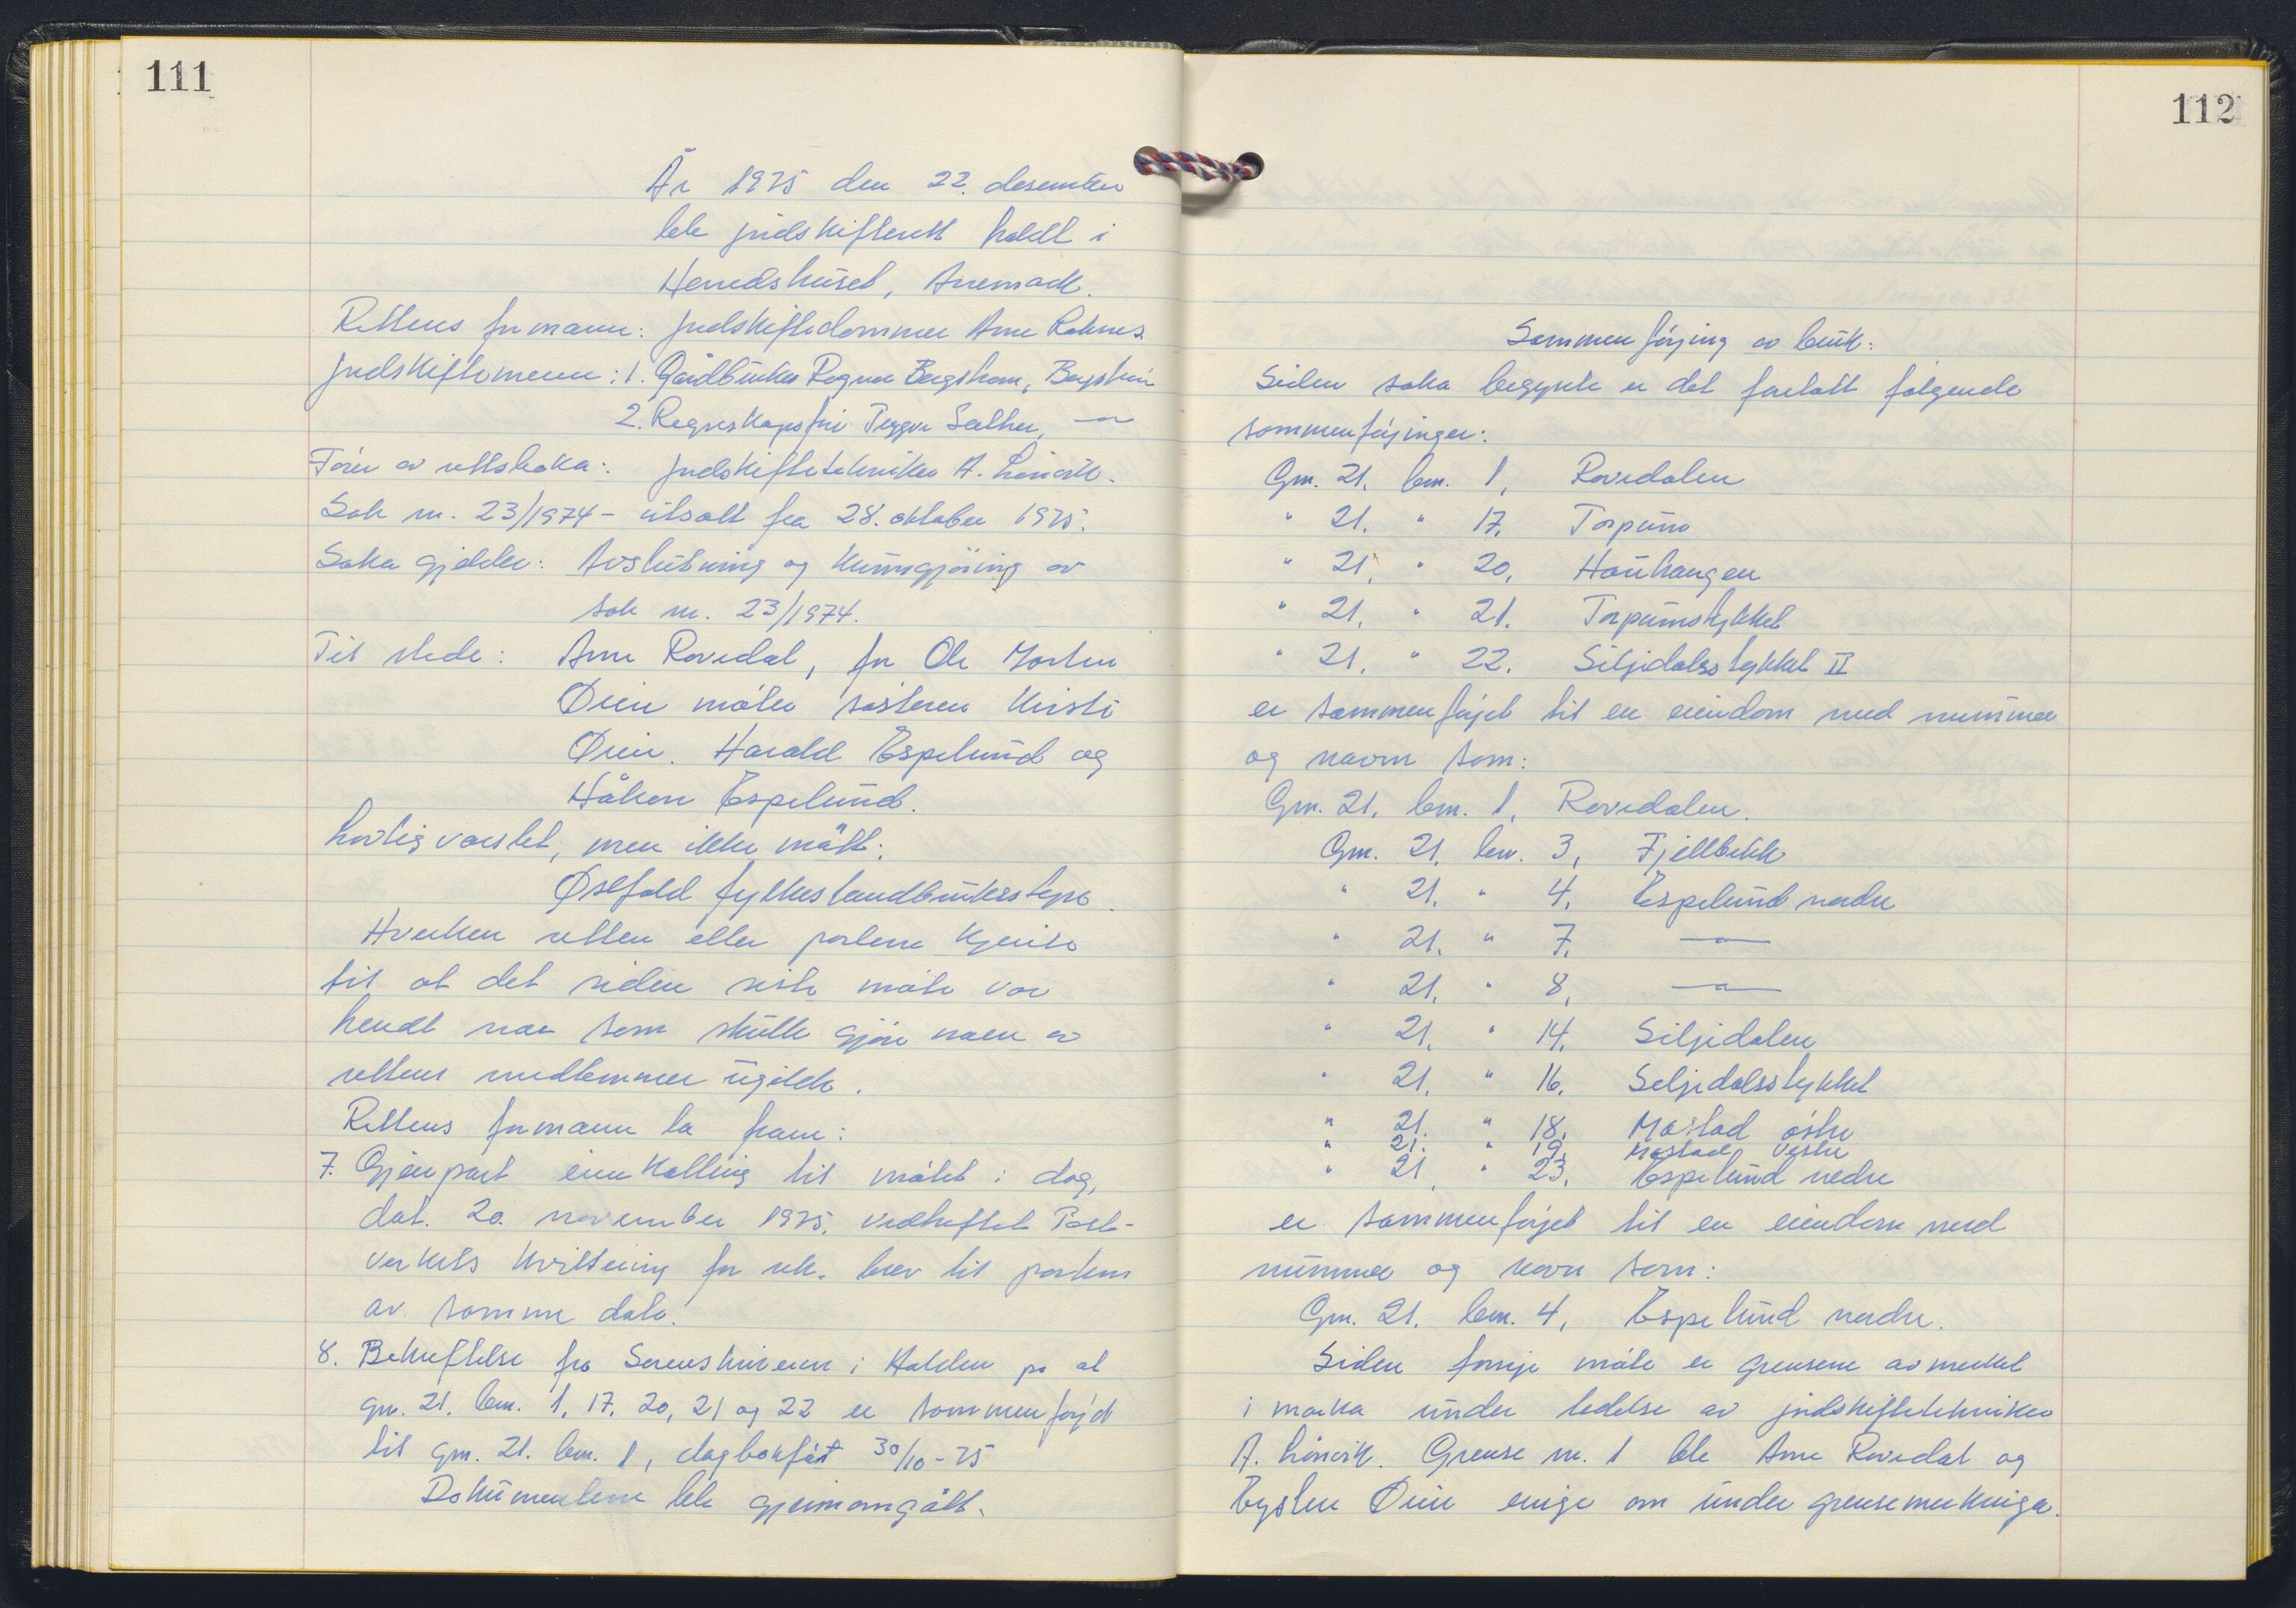 111
År 1975 den 22. desember
ble jordskifterett holdt i
Herredshuset, Aremark.
Rettens formann: Jordskiftedommer Arne
Jordskiftemenn: 1. Gårdbruker Ragnar
2. Regnskapsfører
Fører av rettsboka: Jordskiftetekniker A.
Sak nr. 23/1974 - utsatt fra 28. oktober 1975.
Saka gjelder: Avslutning og kunngjøring av
sak nr. 23/1974.
Til stede: Arne Rovedal, for Ole Morten
Øien møter søsteren Kirsti
Øien. Harald Espelund og
Håkon Espelund.
Lovlig varslet, men ikke møtt:
Østfold fylkeslandbruksstyre.
Hverken retten eller partene kjente
til at det siden siste møte var
hendt noe som skulle gjøre noen av
rettens medlemmer ugilde.
Rettens formann la fram:
7. Gjenpart innkalling til møtet i dag,
dat. 20. november 1975. vedheftet Post-
verkets kvittering for rek. brev til partene
av samme dato.
8. Bekreftelse fra Sorenskriveren i Halden på at
gnr. 21. bnr. 1, 17, 20, 21 og 22 er sammenføyd
til gnr. 21. bnr. 1, dagbokført 30/10-75
Dokumentene ble gjennomgått.
112
Sammenføying av bruk:
Siden saka begynte er det foretatt følgende
sammenføyinger:
Gnr. 21. bnr. 1, Rovedalen
" 21. " 17, Torpum
" 21. " 20, Haukangen
" 21. " 21. Torpumstykket
" 21. " 22. Siljedalsstykket II
er sammenføyet til en eiendom med nummer
og navn som:
Gnr. 21. bnr. 1, Rovedalen.
Gnr. 21. bnr. 3, Fjellbekk
" 21. " 4, Espelund nedre
" 21. " 7. —"—
" 21. " 8, —"—
" 21. " 14. Siljedalen
" 21. " 16. Seljedalsstykket
" 21. " 18, Mastad østre
" 21. " 19, Mastad vestre
" 21. " 23, Espelund nedre
er sammenføyet til en eiendom med
nummer og navn som:
Gnr. 21. bnr. 4, Espelund nedre.
Siden forrige møte er grensene avmerket
i marka under ledelse av jordskiftetekniker
A. Grense nr. 1 ble Arne Rovedal og
Øystein Øien enige om under grensemerkinga.